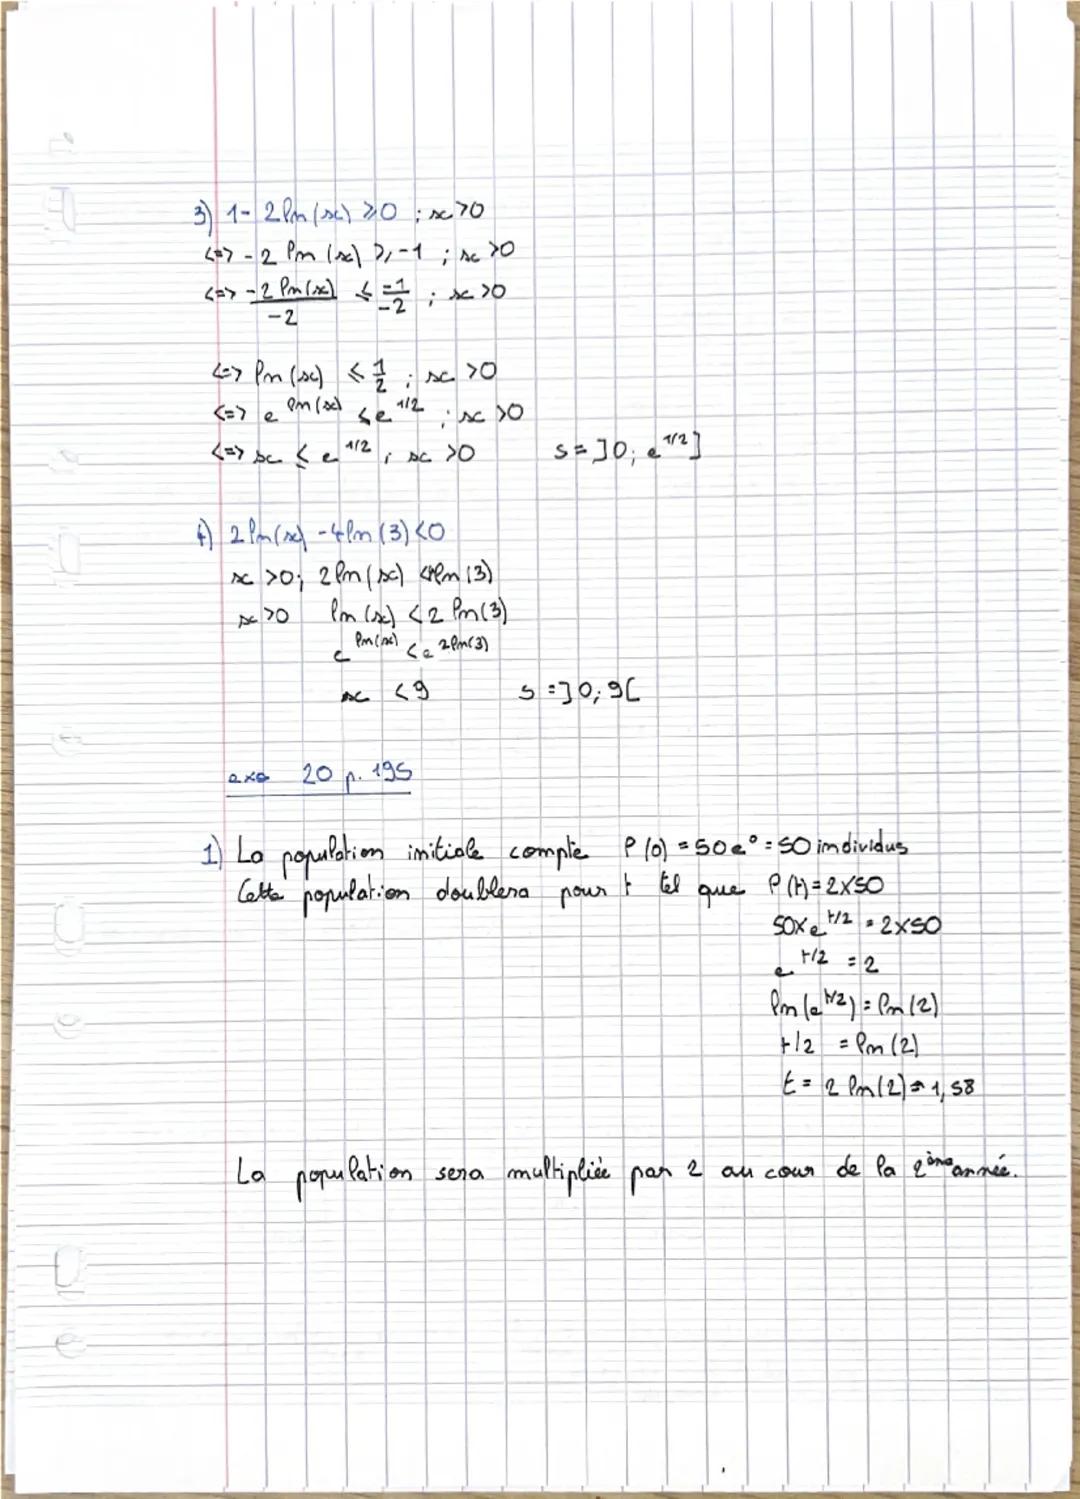 3) 1 - 2 ln(x) ⩾ 0 ; x > 0
<=> -2 ln(x) ⩾ -1 ; x > 0
<=> -2 ln(x)/-2 ⩽ -1/-2 ; x > 0
<=> ln(x) ⩽ 1/2 ; x > 0
<=> e^ln(x) ⩽ e^1/2 ; x > 0
<=> x ⩽ e^1/2 ; x > 0 S = ]0; e^1/2]
4) 2 ln(x) - 4 ln(3) < 0
x > 0; 2 ln(x) < 4 ln(3)
x > 0 ln(x) < 2 ln(3)
e^ln(x) < e^2ln(3)
x < 9 S = ]0; 9[
exo 20 p. 195
1) La population initiale compte P(0) = 50e⁰ = 50 individus
Cette population doublera pour t tel que P(t) = 2×50
50×e^t/2 = 2×50
e^t/2 = 2
ln(e^t/2) = ln(2)
t/2 = ln(2)
t = 2 ln(2) ≈ 1,58
La population sera multipliée par 2 au cour de la 2ème année.